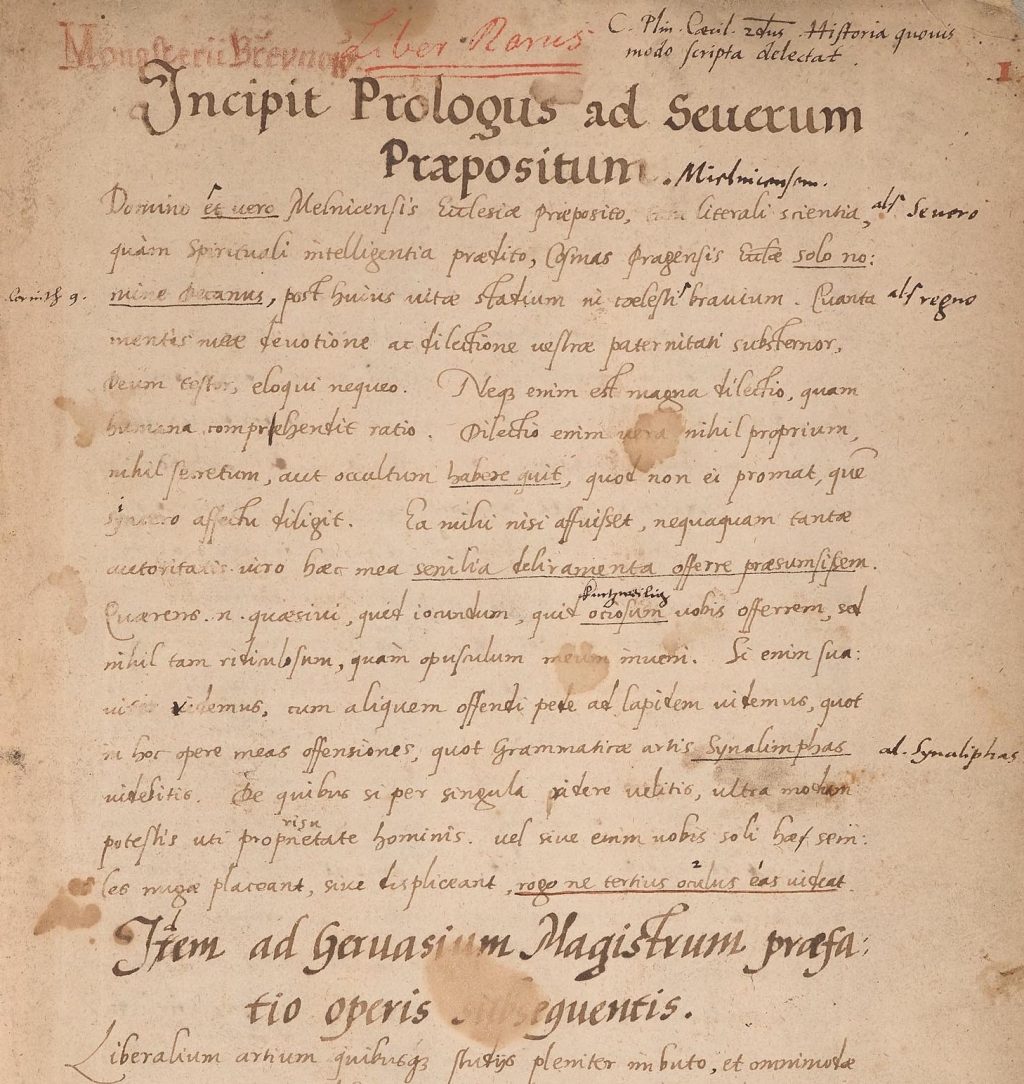 Monasterii Brevnov
Liber Rarus
C. Plin. Cæcil. 2dus. Historia quovis
modo scripta delectat.
1
Incipit Prologus ad Seuerum
Præpositum. Mielnicensem.
Domino et vero Melnicensis Ecclesiæ Præposito, tam literali scientia, als Severo
quàm Spirituali intelligentia prædito, Cosmas Pragensis Eccłæ solo no:
Corinth 9. mine Decanus, post huius vitæ stadium in cælesti bravium. Quanta als regno
mentis meæ devotione ac dilectione vestræ paternitati substernor,
Deum testor, eloqui nequeo. Neq; enim est magna dilectio, quam
humana comprehendit ratio. Dilectio enim vera nihil proprium,
nihil secretum, aut occultum habere quit, quod non ei promat, quē
syncero affectu diligit. Ea mihi nisi affuisset, nequaquam tantæ
autoritatis viro hæc mea senilia deliramenta offerre præsumsissem.
Quærens .n. quæsivi, quid iocundum, quid ociosum vobis offerrem, sed
nihil tam ridiculosum, quàm opusculum meum inveni. Si enim sua:
viter videmus, cum aliquem offendi pede ad lapidem videmus, quot
in hoc opere meas offensiones, quot Grammaticæ artis Synalimphas al. Synaliphas
videbitis. De quibus si per singula ridere velitis, ultra modum
risu
potestis uti proprietate hominis. vel sive enim vobis soli hæ senī:
les nugæ placeant, sive displiceant, rogo ne tertius oculus eas videat.
Item ad Gervasium Magistrum præfa:
tio operis subsequentis.
Liberalium artium quibusq; studijs pleniter imbuto, et omnimodæ